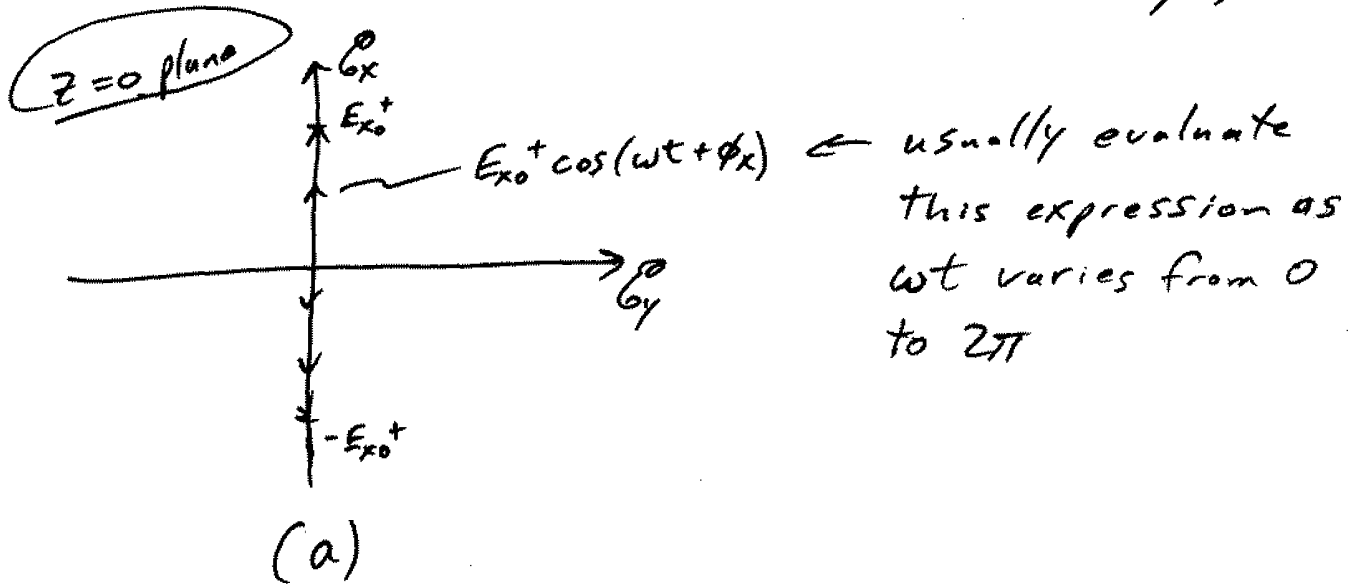 z=0 plane
ℰx
Ex0+
Ex0+ cos(ωt+ϕx) ← usually evaluate
this expression as
ωt varies from 0
to 2π
ℰy
-Ex0+
(a)